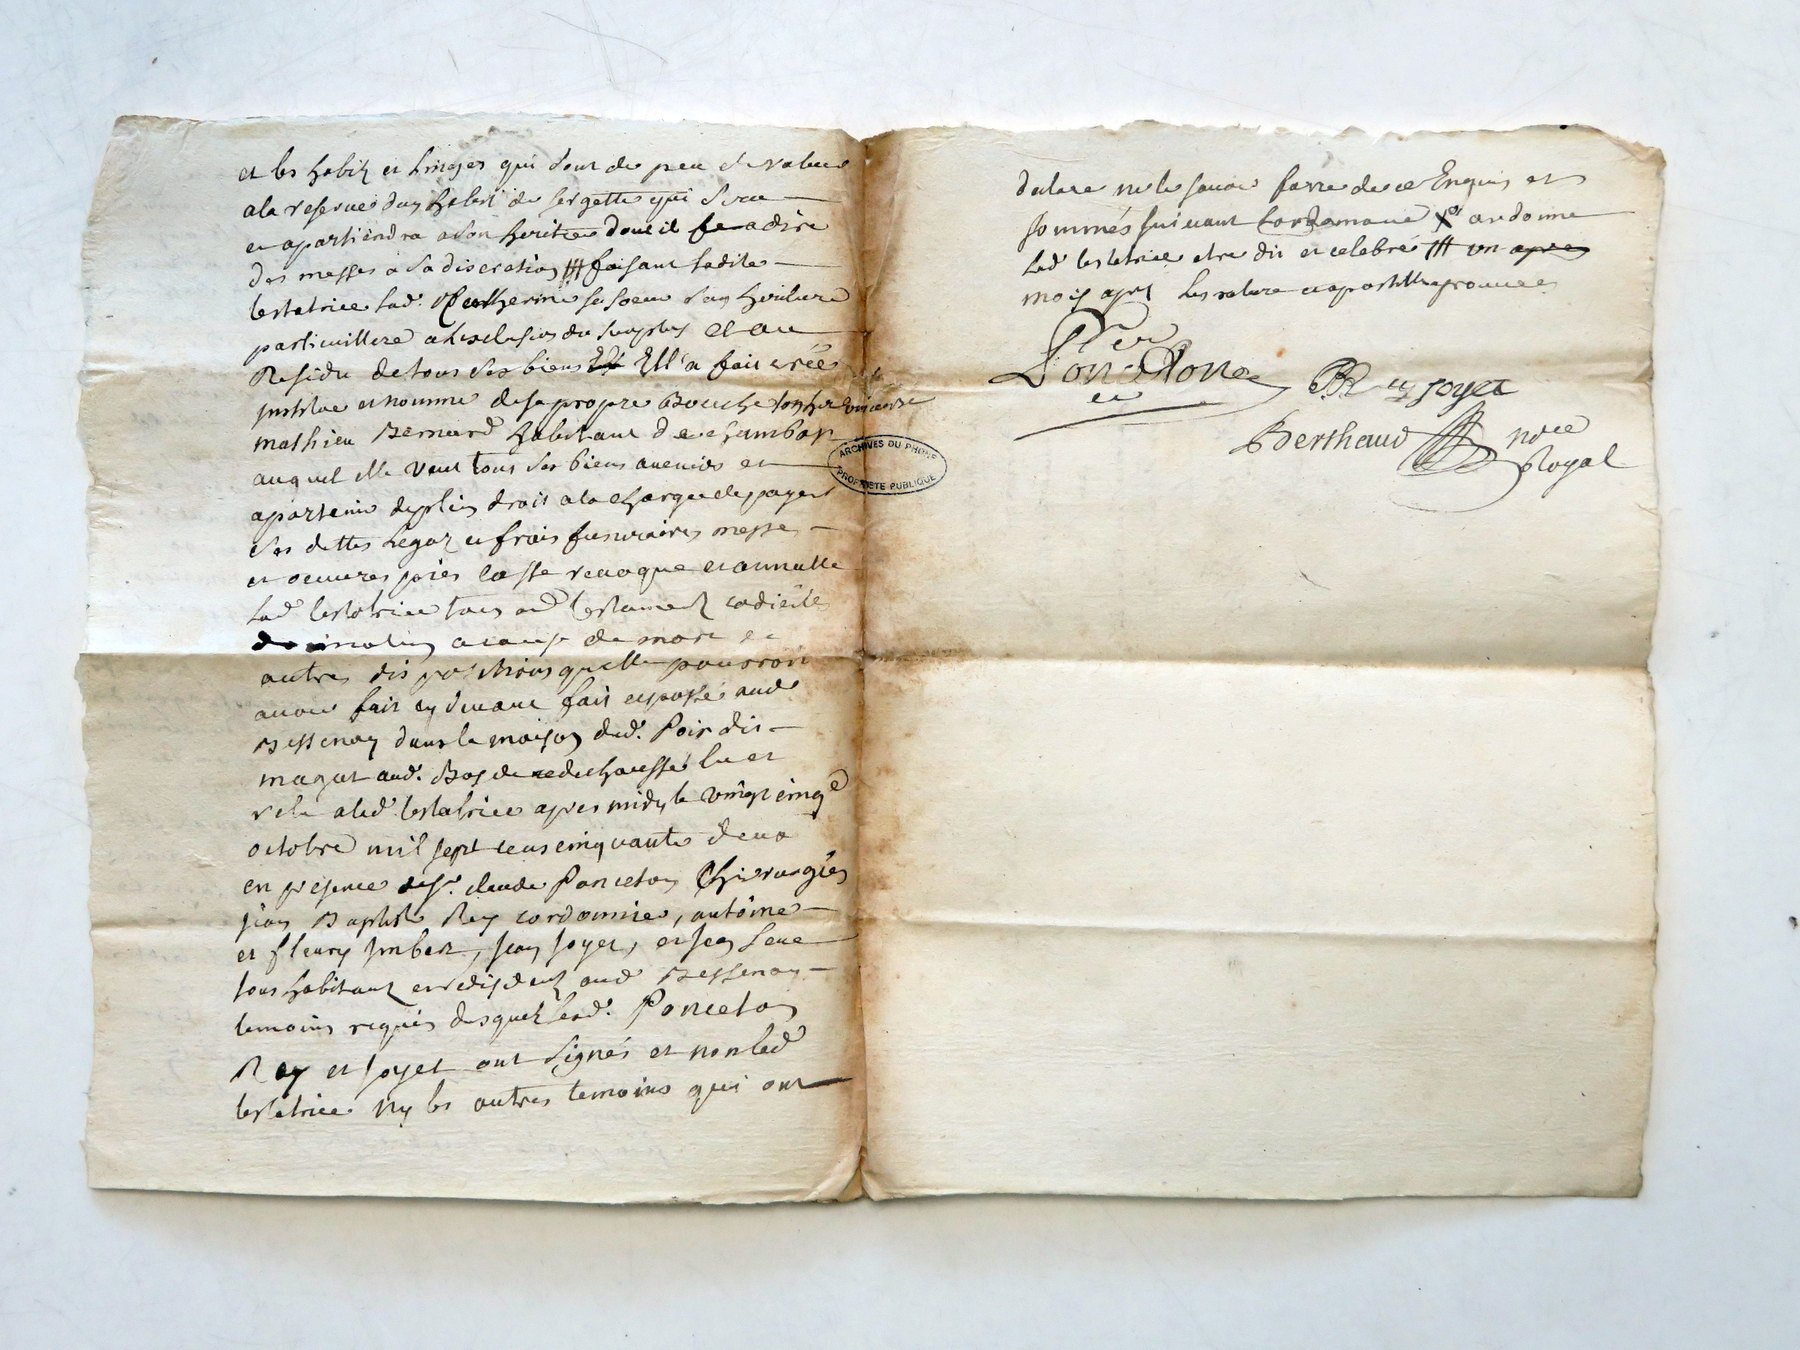 et les habitz et linges qui sont de peu de valeur
a la reserve dun habit de sergette qui sera
et apartiendra a son heritier dont il fera dire
des messes a sa discretion faisant ladite
testatrice lad. Catherine sa soeur son heritiere
particuilliere a lexclusion du surplus et au
Residu de tous ses biens Ell'a fait creé
institue et nomme de sa propre Bouche
mathieu Bernard habitant de chambon
auquel elle veut tous ses biens avenir et
apartenir de plein droit a la charge de payer
ses dettes legaz et frais funeraires messe
et oeuvres pies casse revoque et annulle
lad testatrice tous aud testament codicile
donnation a cause de mort et
autres dispositions quelle pourroit
avoir fait cy devant fait et passé aud
Bessenay dans la maison dud. Poix dit
magat aud. Bas de redechaussé lu et
relu a lad testatrice apres midy le vingt cinqe
octobre mil sept cens cinquante deux
en presence de sr. claude Ponceton Chirurgien
jean Baptiste Rey cordonnier, antoine
et fleury Imbert, jean joyet, et jean
tous habitant et residents aud Bessenay
temoins requis desquelz led. Ponceton
Rey et joyet ont signés et non lad
testatrice ny les autres temoins qui ont
ARCHIVES DU RHONE
PROPRIETE PUBLIQUE
declaré ne le savoir faire de ce Enquis et
sommés suivant lordonnance
lad testatrice etre dit et celebré un apres
mois apres
Ponceton
Rey joyet
Berthaud nore
Royal